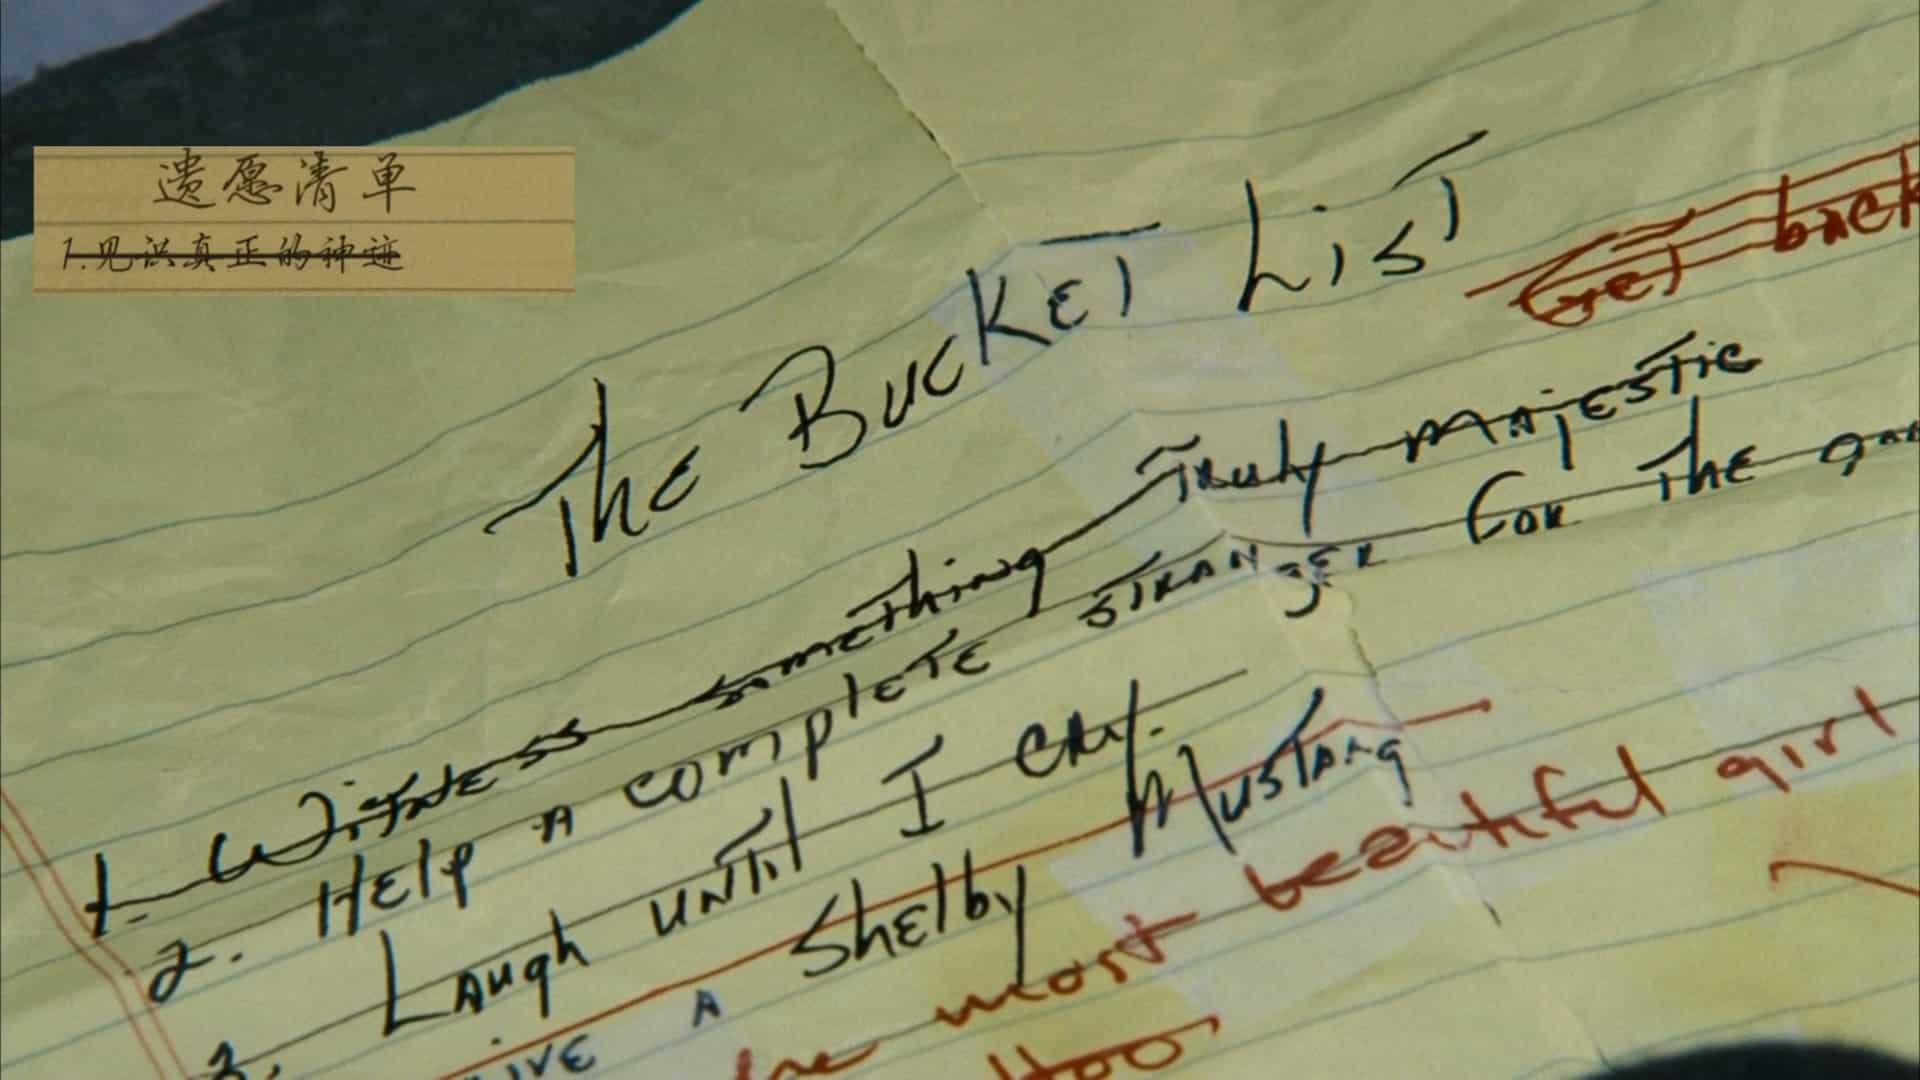 遗愿清单
1.见识真正的神迹
The Bucket List
Get back
1. Witness something Truly Majestic
2. Help a complete stranger for the
3. Laugh until I cry.
a Shelby Mustang
most beautiful girl